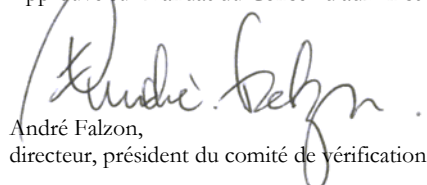 André Falzon.
André Falzon,
directeur, président du comité de vérification